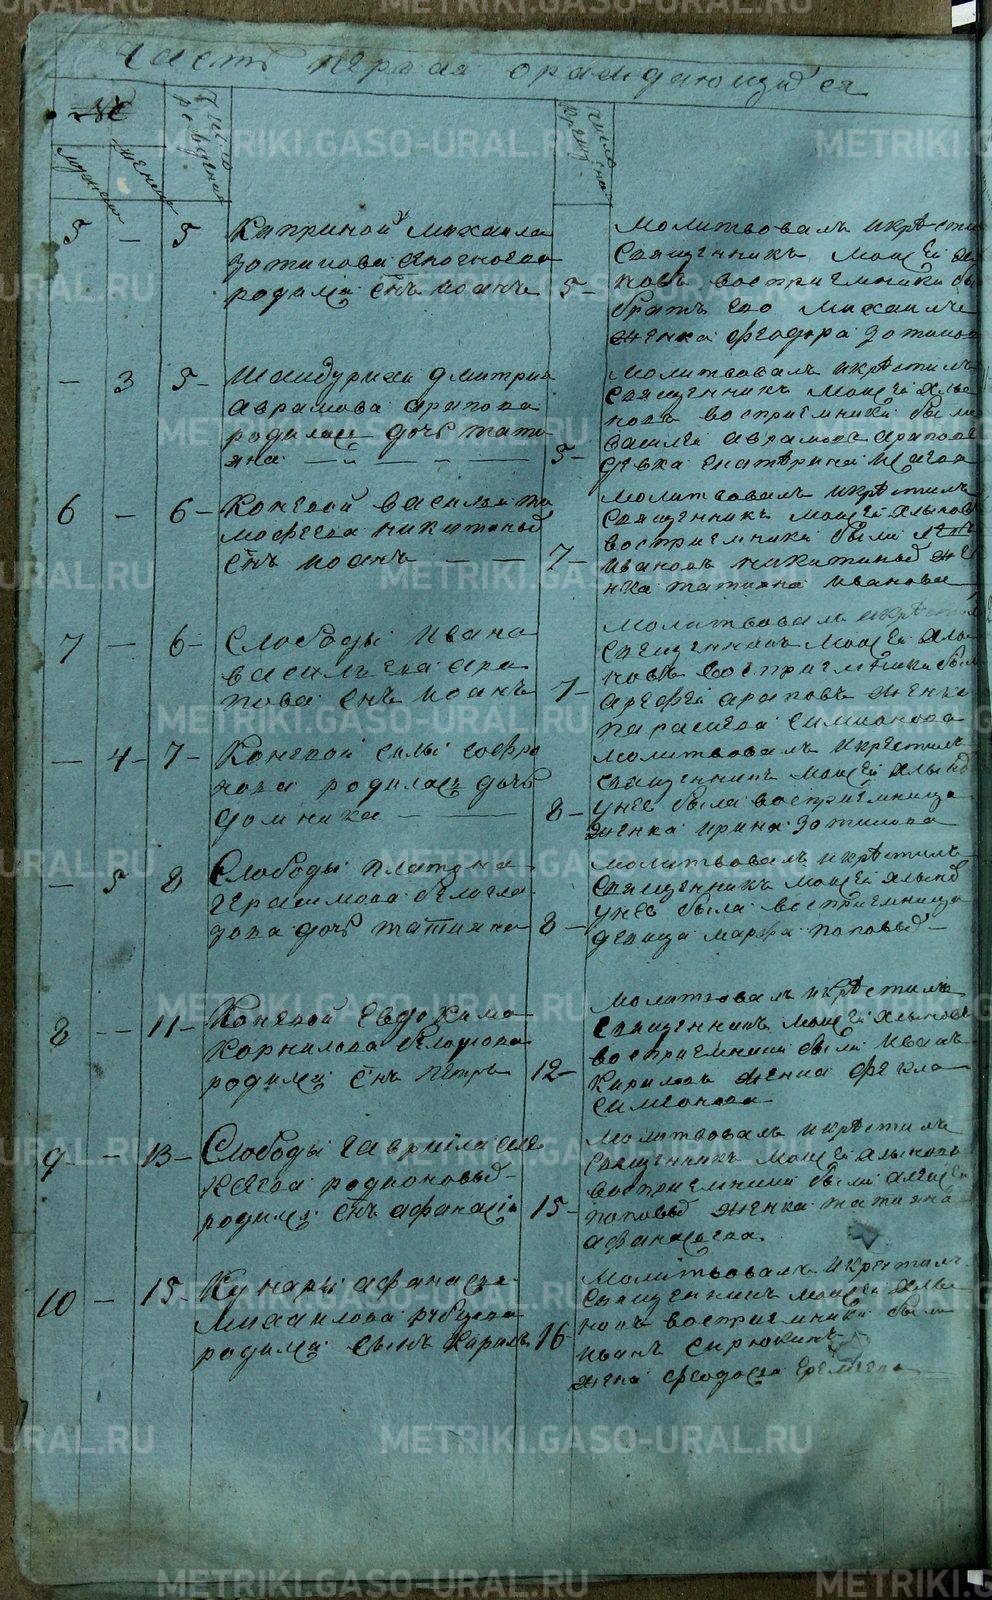 Часть первая ораждающихся
№
мужеска женска
число рождения
число крещения
5 — 5 Каприной Михаила
родился снъ иоанъ 5
молитвовалъ икрѣстилъ
священникъ моисей хлы
новъ восприемники бы
братъ его михаилъ
женка феодора зотикова
— 3 5 Шайдурихи дмитрия
аврамова арапова
родилась дочь татия
яна 5
молитвовалъ икрѣстилъ
священникъ моисей хлы
новъ восприемники были
василей аврамовъ араповъ
девка екатѣрина
6 — 6 Коневой василья ти
мофеева никитиныхъ
снъ иоанъ 7
молитвовалъ икрѣстилъ
священникъ моисей хлынов
восприемники были
ивановъ никитиныхъ же
нка татияна иванова
7 — 6 Слободы ивана
васильева ара
пова снъ иоанъ 7
молитвовалъ икрѣстилъ
священникъ моисей хлы
новъ восприемники были
арефей араповъ женка
параскева симионова
— 4 7 Коневой силы софро
нова родилась дочь
домника 8
молитвовалъ икрѣстилъ
священникъ моисей хлынов
унее была восприемница
женка ирина зотикова
— 5 8 Слободы платона
герасимова белогла
зова дочь татияна 8
молитвовалъ икрѣстилъ
священникъ моисей хлынов
унее была восприемница
девица марфа поповыхъ
8 — 11 Коневой евдокима
корнилова
родился снъ петръ 12
молитвовалъ икрѣстилъ
священникъ моисей хлыновъ
восприемники были иванъ
кириловъ женка фекла
симеонова
9 — 13 Слободы гавриила
родионовыхъ
родился снъ афанасий 15
молитвовалъ икрѣстилъ
священникъ моисей хлыновъ
восприемники были алексей
поповыхъ женка татияна
афанасьева
10 — 15 Кунары афанасья
михаилова
родился сынъ карилъ 16
молитвовалъ икрѣстилъ
священникъ моисей хлы
новъ восприемники были
иванъ сирюкинъ
жена феодосья еремеева
METRIKI.GASO-URAL.RU